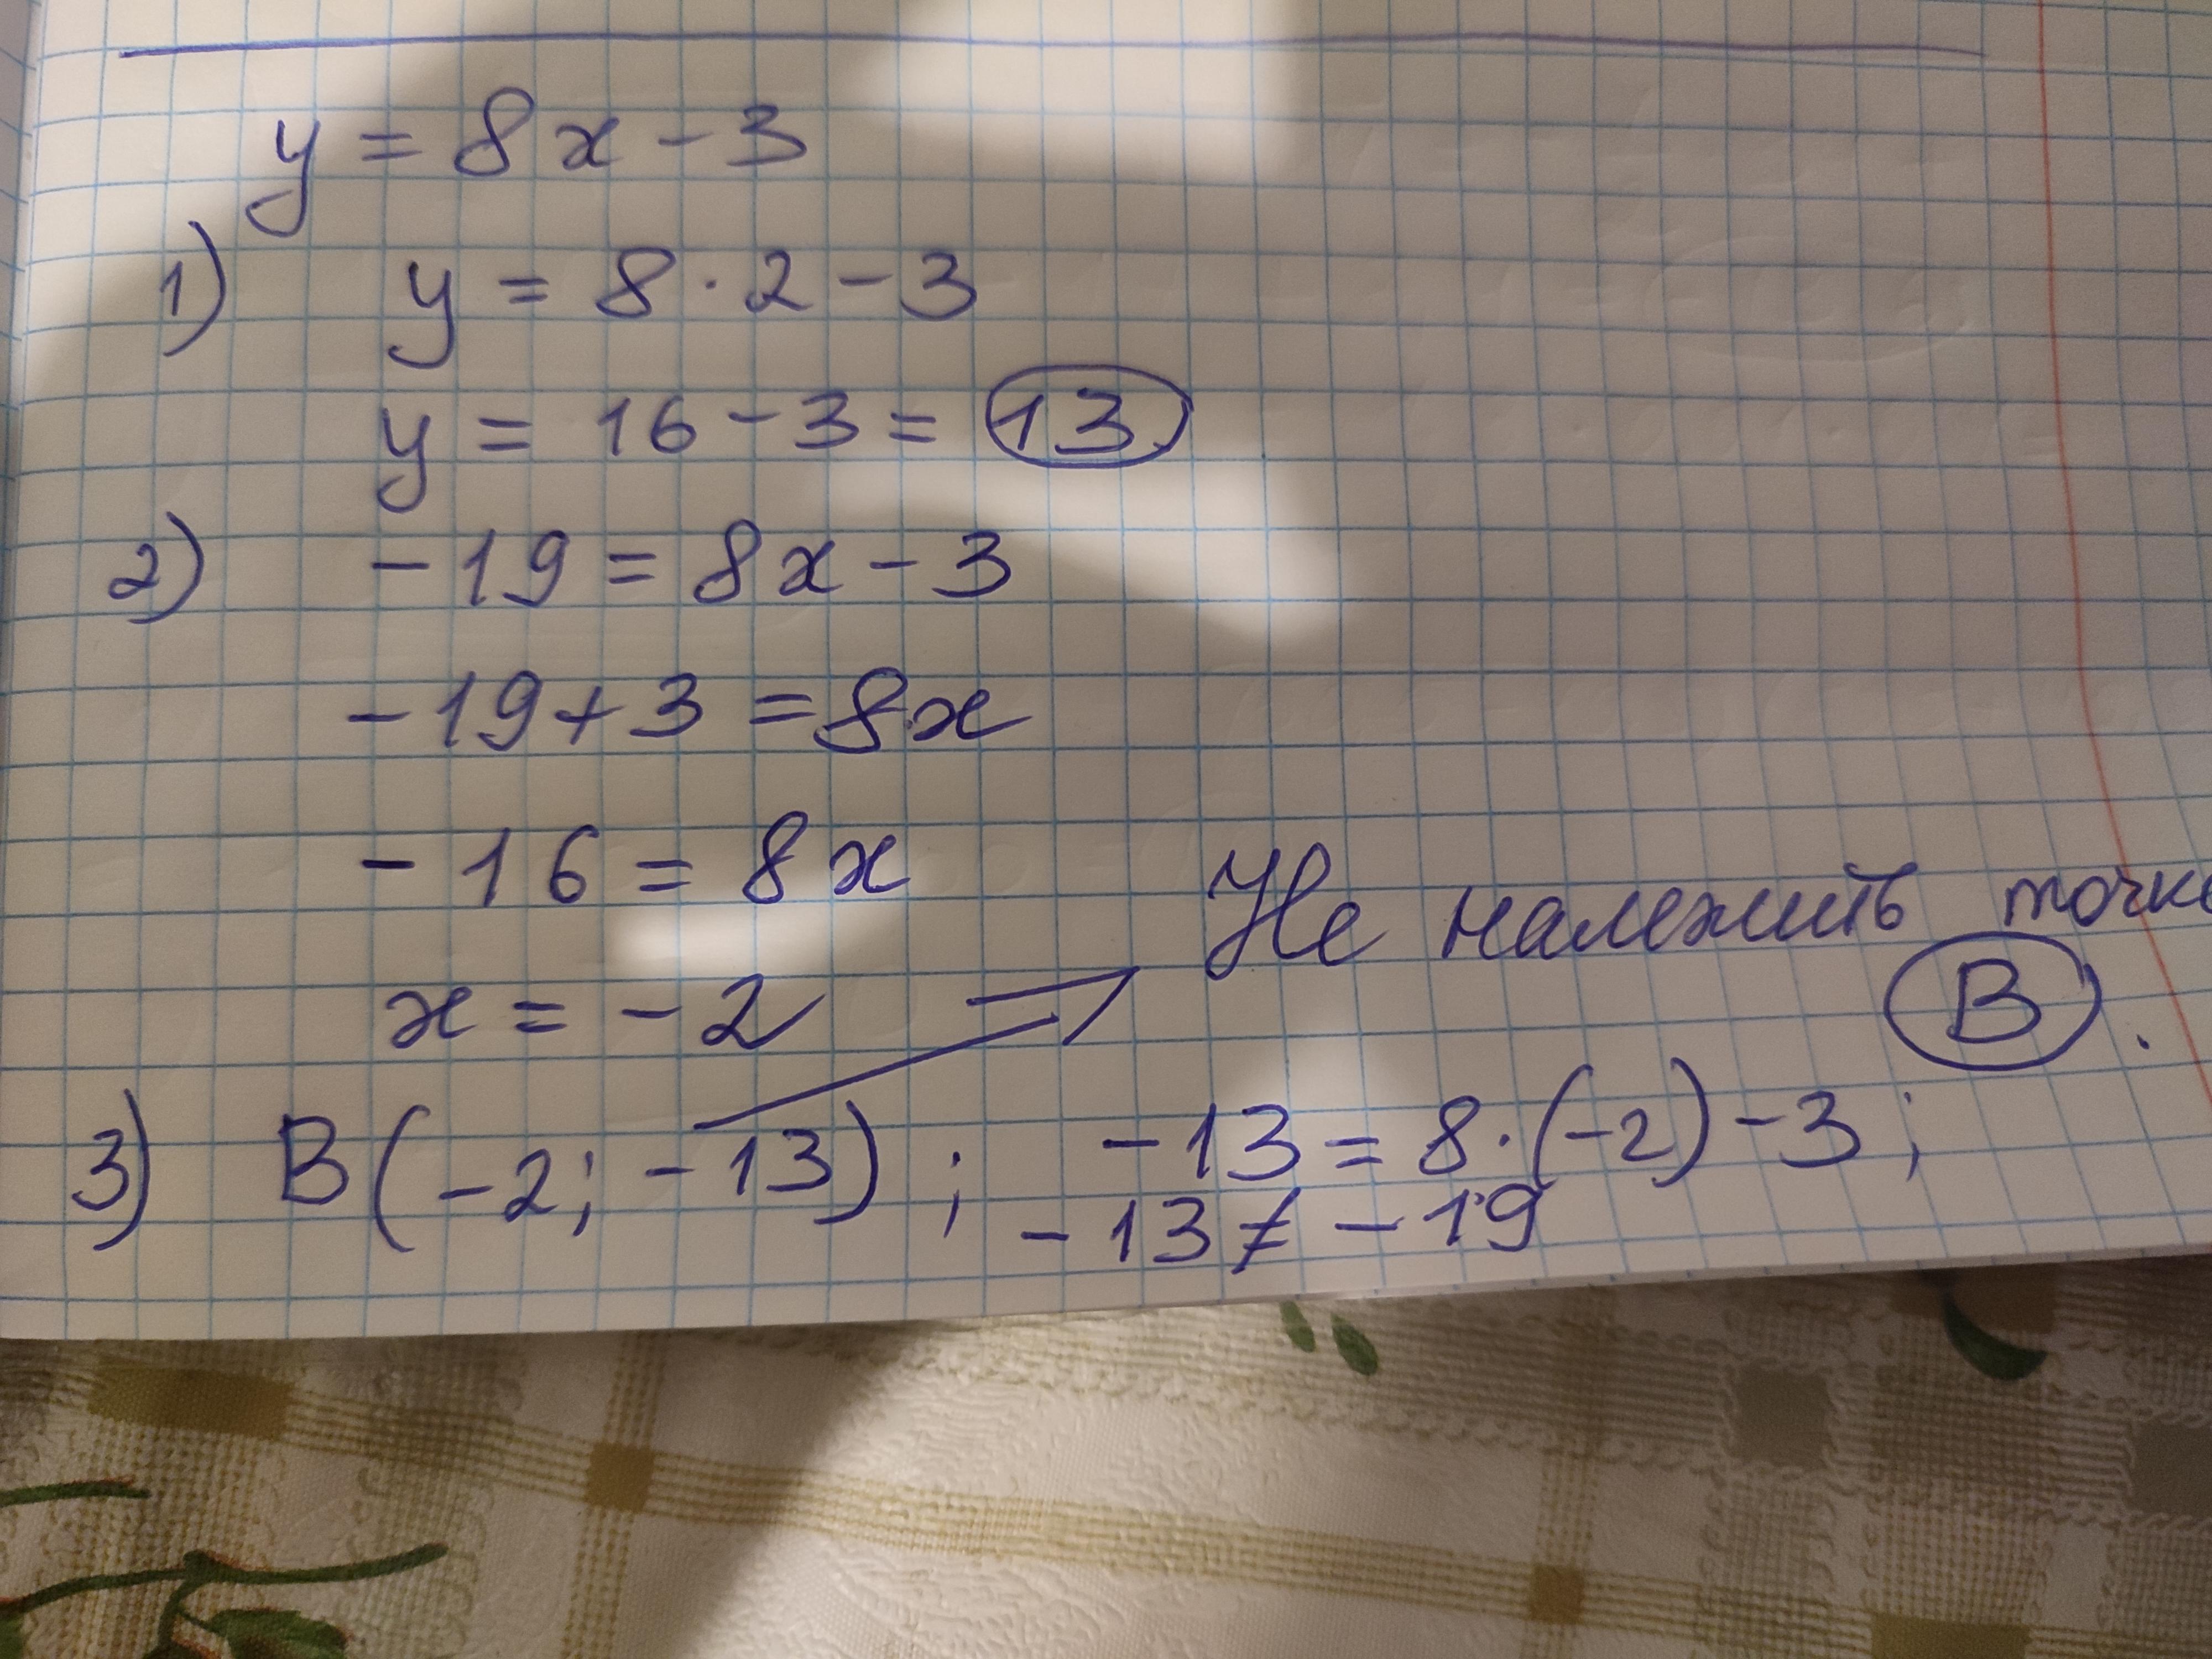 y = 8x - 3
1) y = 8 · 2 - 3
y = 16 - 3 = 13
2) - 19 = 8x - 3
- 19 + 3 = 8x
- 16 = 8x
x = - 2
Не належить точка
B.
3) B (-2; -13) ; - 13 = 8 · (-2) - 3 ;
- 13 ≠ - 19